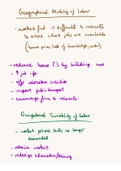 Geographical Mobility of Labour
- workers find it difficult to relocate
to areas where jobs are available.
(house prices, lack of knowledge, costs)
- reduce house P's by building more
- ↑ job info
- offer relocation subsidies
- improve public transport
- encourage firms to relocate
Occupational Immobility of Labour
- workers' skills no longer
demanded
- retrain workers
- redesign education/training